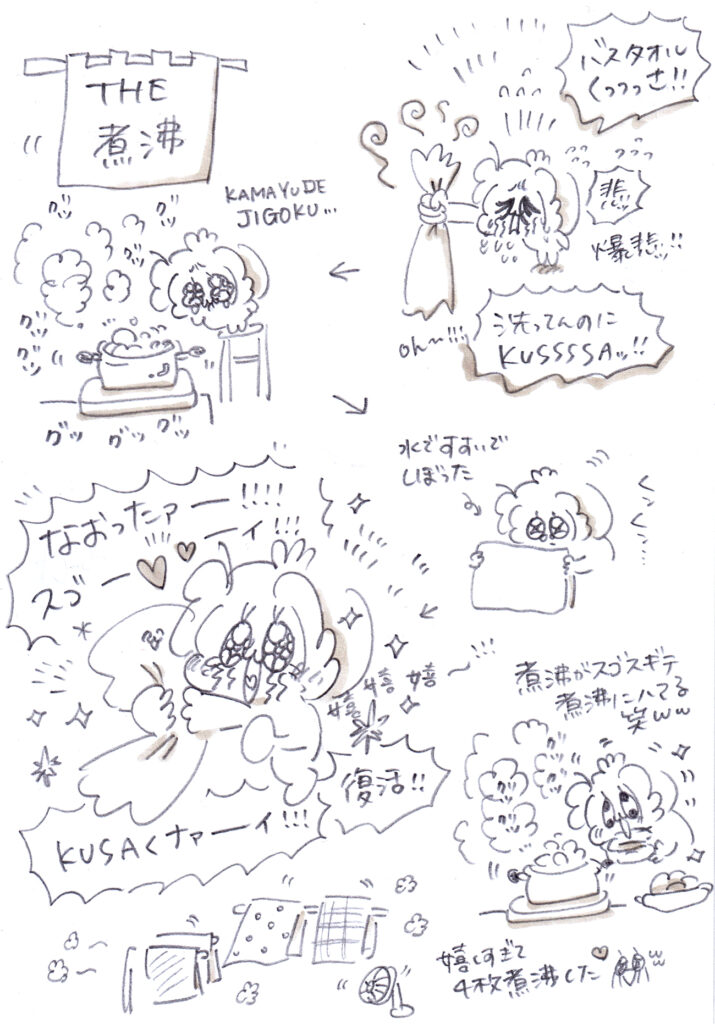 バスタオル
くっっっさ!!
悲ッ
爆悲ッ!!
洗ってんのに
KUSSSSAッ!!
oh〜!!!
THE
煮沸
KAMAYUDE
JIGOKU...
グッ
グッ
グッ
グッ
グッ
グッ
グッ
グッ
水ですすいで
しぼった
クンクン...
なおったァー!!!!
スゴーーィ!!!
嬉 嬉 嬉〜!!!
復活!!
KUSAくナァーィ!!!
煮沸がスゴスギテ
煮沸にハマってる
笑ww
グッ
グッ
グッ
グッ
嬉しすぎて
4枚煮沸した
ww